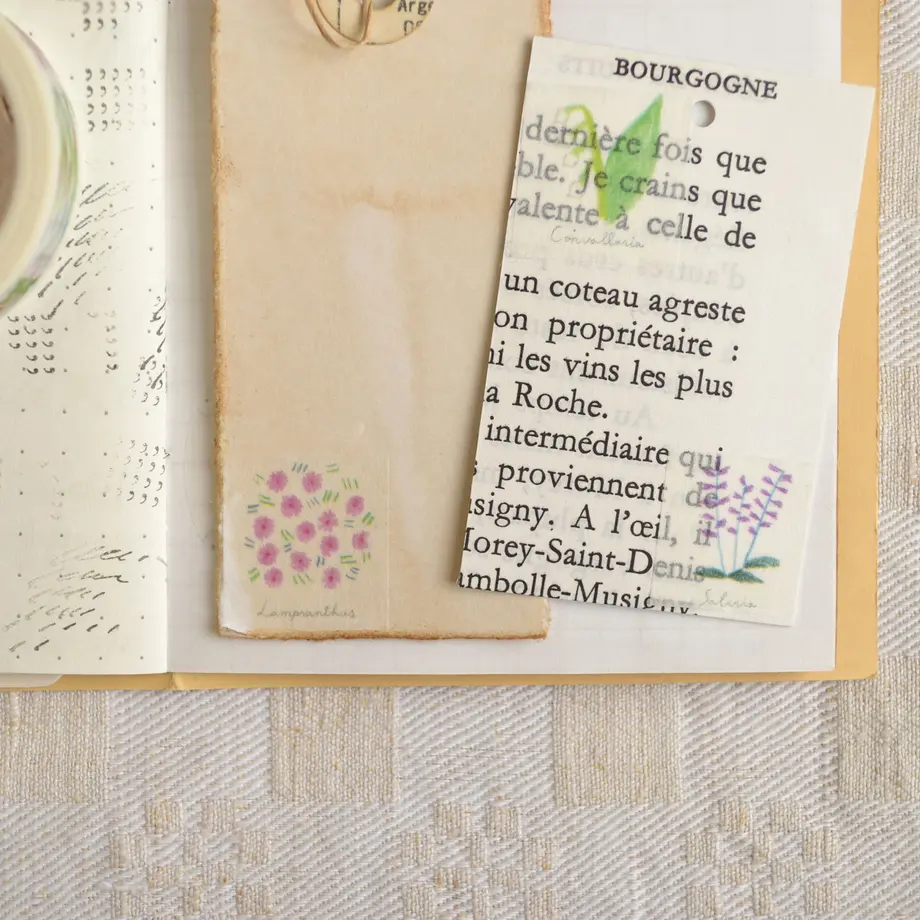 Arge
Lampranthus
BOURGOGNE
dernière fois que
ble. Je crains que
valente à celle de
Convallaria
d'autres
un coteau agreste
on propriétaire :
ni les vins les plus
a Roche.
intermédiaire qui
proviennent de
signy. A l'œil, il
Morey-Saint-Denis
ambolle-Musigny.
Salvia